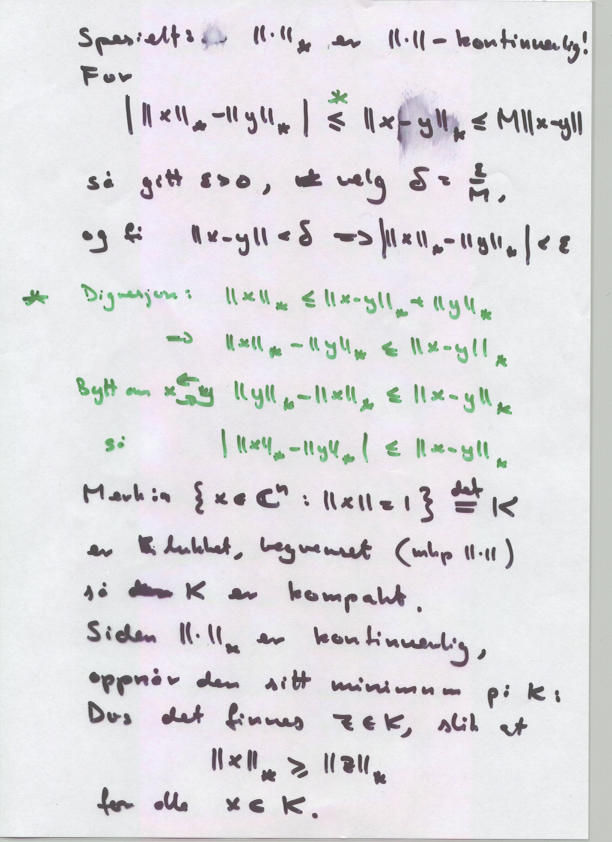 Spesielt: ‖·‖_* er ‖·‖-kontinuerlig!
For
| ‖x‖_* - ‖y‖_* | ≤^* ‖x-y‖_* ≤ M‖x-y‖
så gitt ε>0, velg δ = ε/M,
og få ‖x-y‖ < δ => |‖x‖_* - ‖y‖_*| < ε
* Digresjon: ‖x‖_* ≤ ‖x-y‖_* + ‖y‖_*
=> ‖x‖_* - ‖y‖_* ≤ ‖x-y‖_*
Bytt om x ⇄ y ‖y‖_* - ‖x‖_* ≤ ‖x-y‖_*
så | ‖x‖_* - ‖y‖_* | ≤ ‖x-y‖_*
Merk: {x ∈ ℂⁿ : ‖x‖ = 1} =^{def} K
er lukket, begrenset (mhp ‖·‖)
så K er kompakt.
Siden ‖·‖_* er kontinuerlig,
oppnår den sitt minimum på K:
Dvs det finnes z ∈ K, slik at
‖x‖_* ≥ ‖z‖_*
for alle x ∈ K.